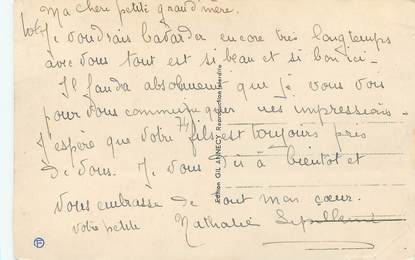 Ma chère petite grand'mère.
Je voudrais bavarder encore très longtemps
avec vous tout est si beau et si bon ici.
Il faudra absolument que je vous vois
pour vous communiquer mes impressions.
J'espère que votre fils est toujours près
de vous. Je vous dis à bientôt et
vous embrasse de tout mon cœur.
votre petite Nathalie
Edition GIL ANNECY Reproduction interdite